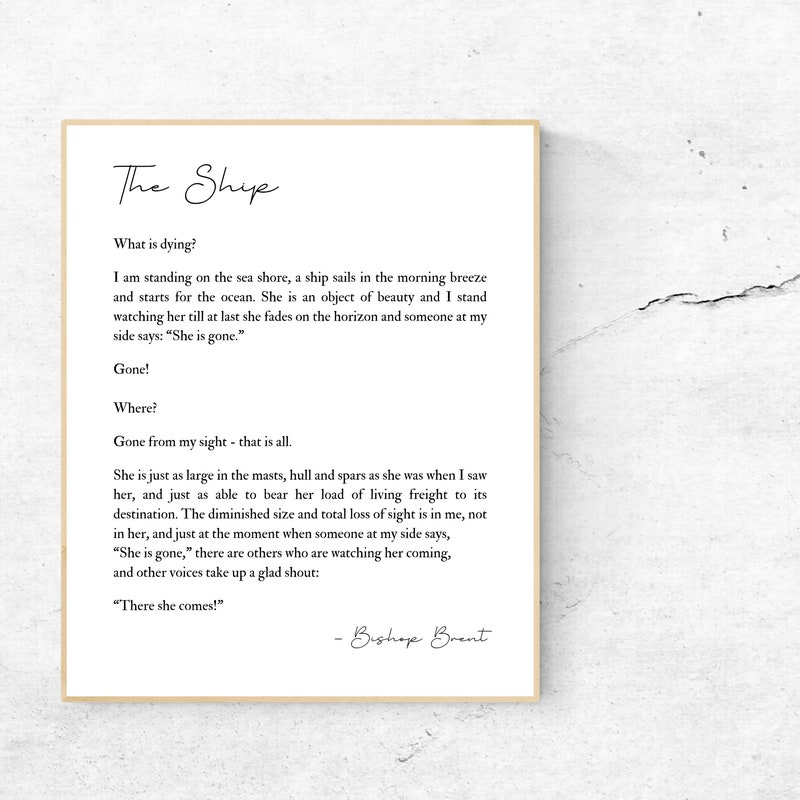 The Ship
What is dying?
I am standing on the sea shore, a ship sails in the morning breeze
and starts for the ocean. She is an object of beauty and I stand
watching her till at last she fades on the horizon and someone at my
side says: “She is gone.”
Gone!
Where?
Gone from my sight - that is all.
She is just as large in the masts, hull and spars as she was when I saw
her, and just as able to bear her load of living freight to its
destination. The diminished size and total loss of sight is in me, not
in her, and just at the moment when someone at my side says,
“She is gone,” there are others who are watching her coming,
and other voices take up a glad shout:
“There she comes!”
- Bishop Brent